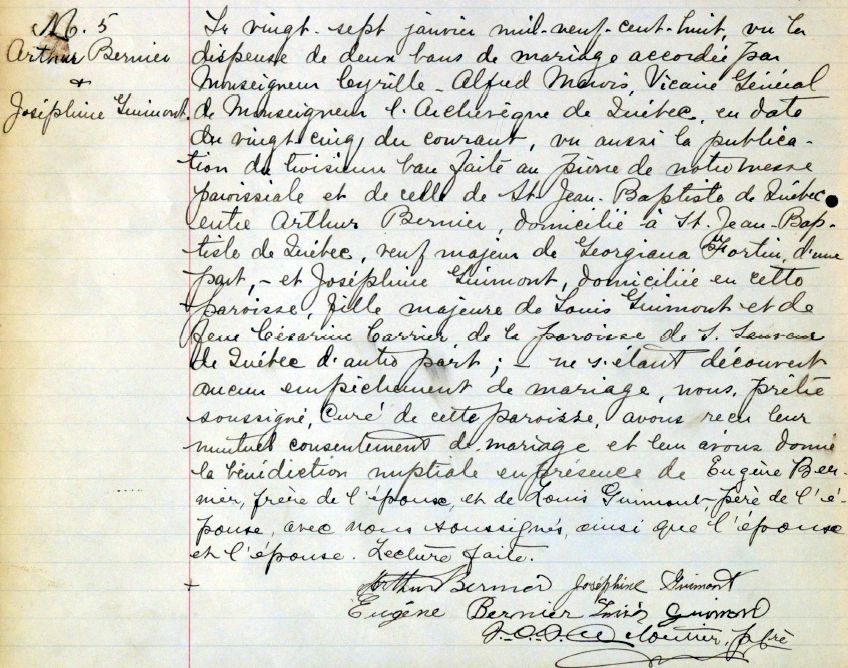 M. 5
Arthur Bernier
+
Joséphine Guimont
Le vingt-sept janvier mil-neuf-cent-huit, vu la
dispense de deux bans de mariage accordée par
Monseigneur Cyrille-Alfred Marois, Vicaire Général
de Monseigneur l'Archevêque de Québec, en date
du vingt-cinq du courant, vu aussi la publica-
tion du troisième ban faite au prône de notre messe
paroissiale et de celle de St. Jean-Baptiste de Québec
entre Arthur Bernier, domicilié à St. Jean-Bap-
tiste de Québec, veuf majeur de Georgiana Fortin, d'une
part, - et Joséphine Guimont, domiciliée en cette
paroisse, fille majeure de Louis Guimont et de
feue Césarine Carrier, de la paroisse de S. Sauveur
de Québec d'autre part; - ne s'étant découvert
aucun empêchement de mariage, nous, prêtre
soussigné, Curé de cette paroisse, avons reçu leur
mutuel consentement de mariage et leur avons donné
la bénédiction nuptiale en présence de Eugène Ber-
nier, frère de l'époux, et de Louis Guimont, père de l'é-
pouse, avec nous soussignés, ainsi que l'époux
et l'épouse. Lecture faite.
+ Arthur Bernier Joséphine Guimont
Eugène Bernier Louis Guimont
Cloutier, Ptre